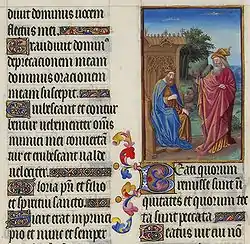 divit dominus vocem
fletus mei
Exaudivit dominus
deprecationem meam
dominus orationem
meam suscepit
Erubescant et contur
bentur vehementer omnes
inimici mei convertantur
et erubescant valde
velociter
Gloria patri et filio
et spiritui sancto
Sicut erat in principio
et nunc et semper
Beati quorum
remisse sunt iniquitates
et quorum tecta
sunt peccata
Beatus vir cui non